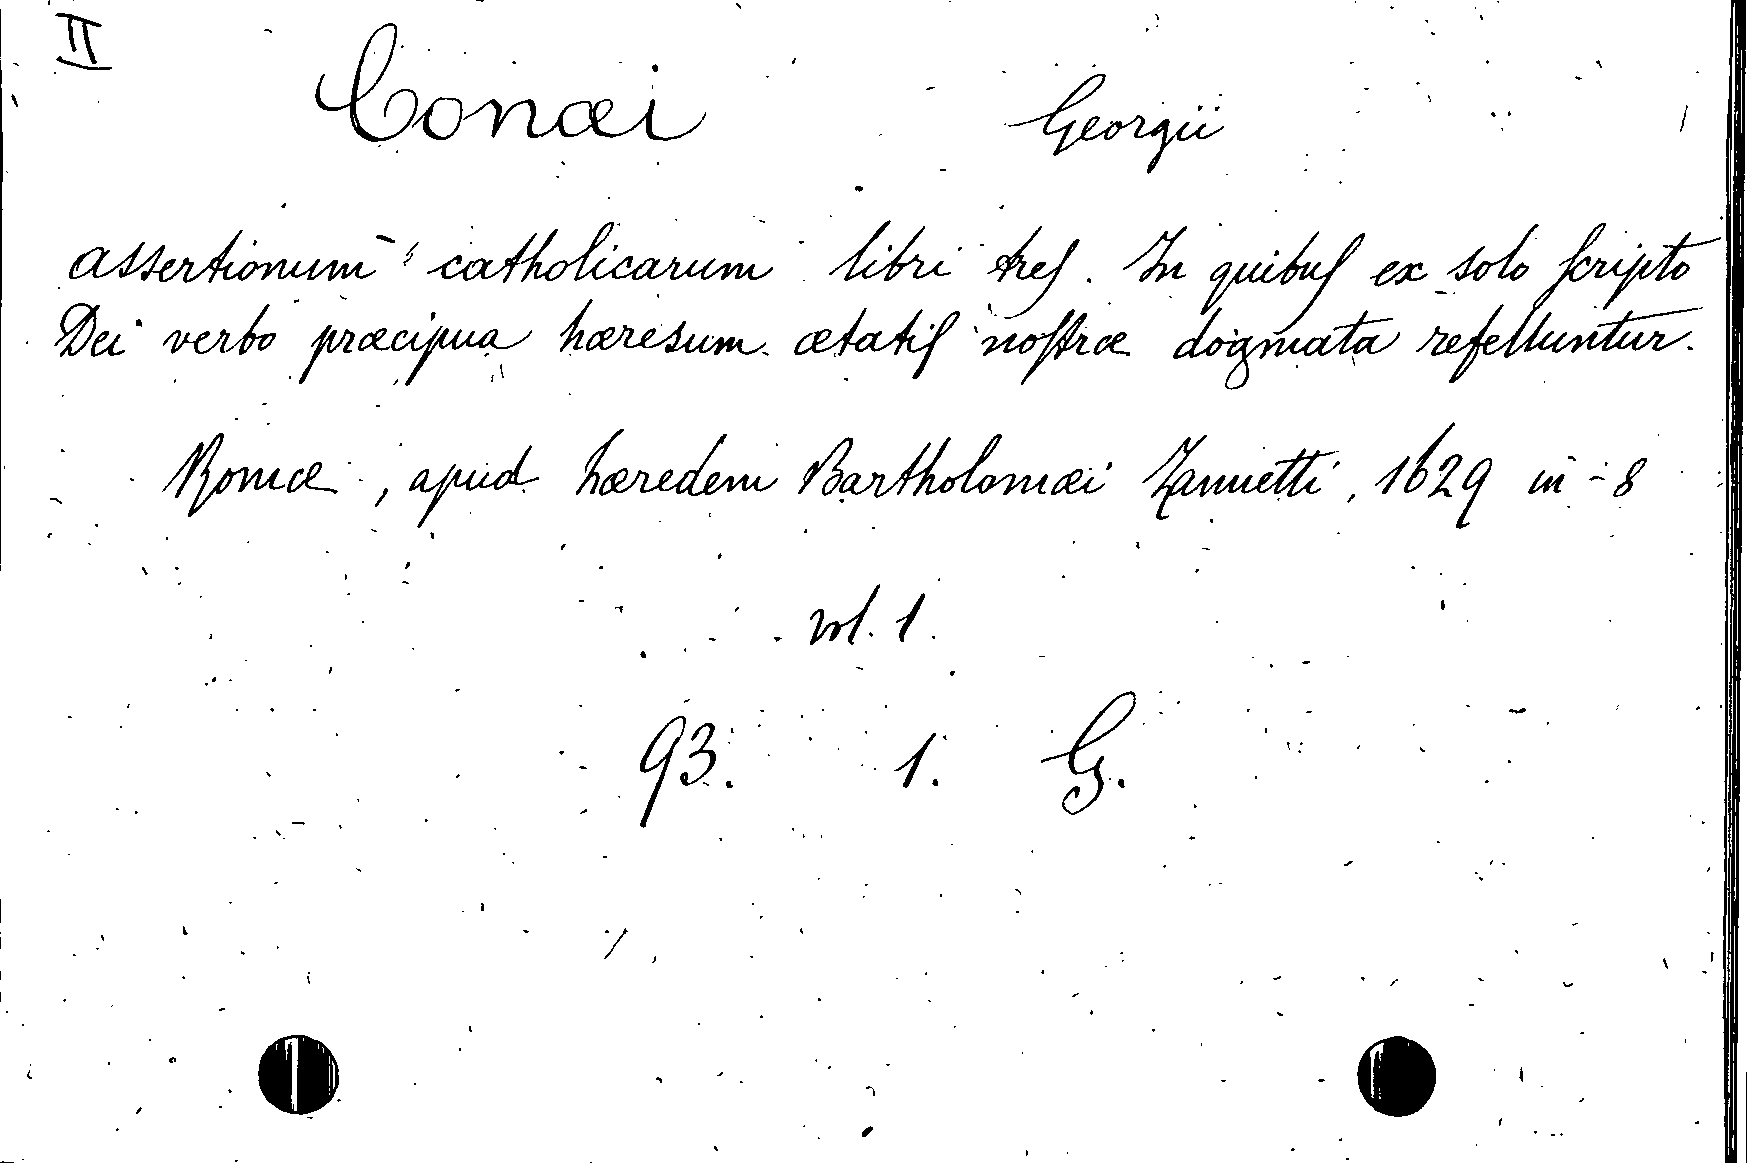 II
Conæi Georgii
assertionum catholicarum libri tres. In quibus ex solo scripto
Dei verbo præcipua hæresum ætatis nostræ dogmata refelluntur.
Romæ, apud hæredem Bartholomæi Zannetti, 1629 in-8
vol. 1.
93. 1. G.